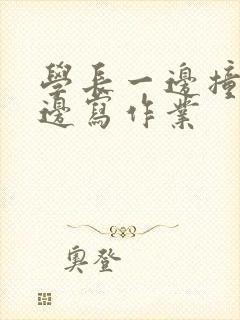 學長一邊撞
邊寫作業
奧登